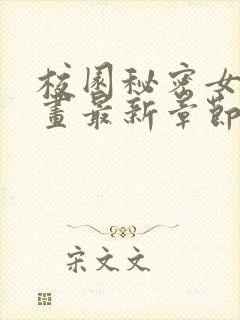 校园秘密女
画最新章节
宋文文